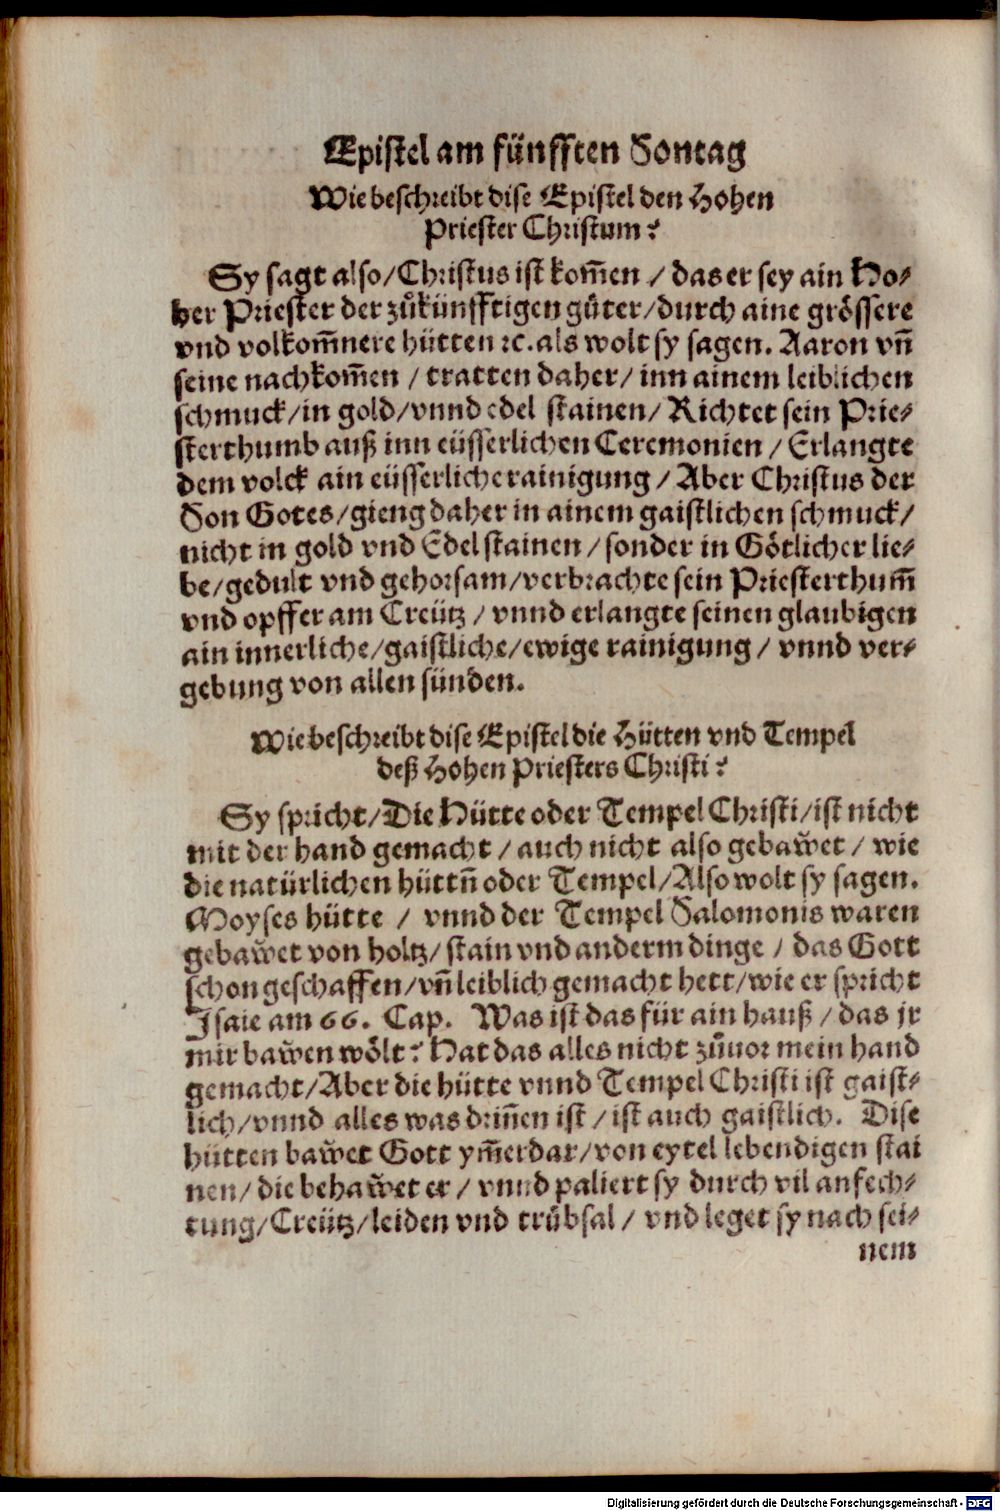 Epistel am fünfften Sontag
Wie beschreibt dise Epistel den Hohen
Priester Christum?
Sy sagt also/Christus ist kom̃en / das er sey ain Ho-
her Priester der zůkünfftigen gůter/durch aine grössere
vnd volkom̃nere hütten ꝛc. als wolt sy sagen. Aaron vñ
seine nachkom̃en / tratten daher/ inn ainem leiblichen
schmuck/in gold/vnnd edel stainen/ Richtet sein Prie-
sterthumb auß inn eüsserlichen Ceremonien / Erlangte
dem volck ain eüsserliche rainigung / Aber Christus der
Son Gotes/gieng daher in ainem gaistlichen schmuck/
nicht in gold vnd Edelstainen / sonder in Götlicher lie-
be/gedult vnd gehorsam/verbrachte sein Priesterthum̃
vnd opffer am Creütz / vnnd erlangte seinen glaubigen
ain innerliche/gaistliche/ewige rainigung / vnnd ver-
gebung von allen sünden.
Wie beschreibt dise Epistel die Hütten vnd Tempel
deß Hohen Priesters Christi?
Sy spricht/Die Hütte oder Tempel Christi/ist nicht
mit der hand gemacht / auch nicht also gebaw̌et / wie
die natürlichen hüttñ oder Tempel/Also wolt sy sagen.
Moyses hütte / vnnd der Tempel Salomonis waren
gebaw̌et von holtz/ stain vnd anderm dinge / das Gott
schon geschaffen/vñ leiblich gemacht hett/wie er spricht
Isaie am 66. Cap. Was ist das für ain hauß / das jr
mir baw̌en wölt? Hat das alles nicht zůuor mein hand
gemacht/Aber die hütte vnnd Tempel Christi ist gaist-
lich/vnnd alles was driñen ist / ist auch gaistlich. Dise
hütten baw̌et Gott ym̃erdar/von eytel lebendigen stai
nen/ die behaw̌et er / vnnd paliert sy durch vil anfech-
tung/Creütz/leiden vnd trůbsal / vnd leget sy nach sei-
nem
Digitalisierung gefördert durch die Deutsche Forschungsgemeinschaft - DFG